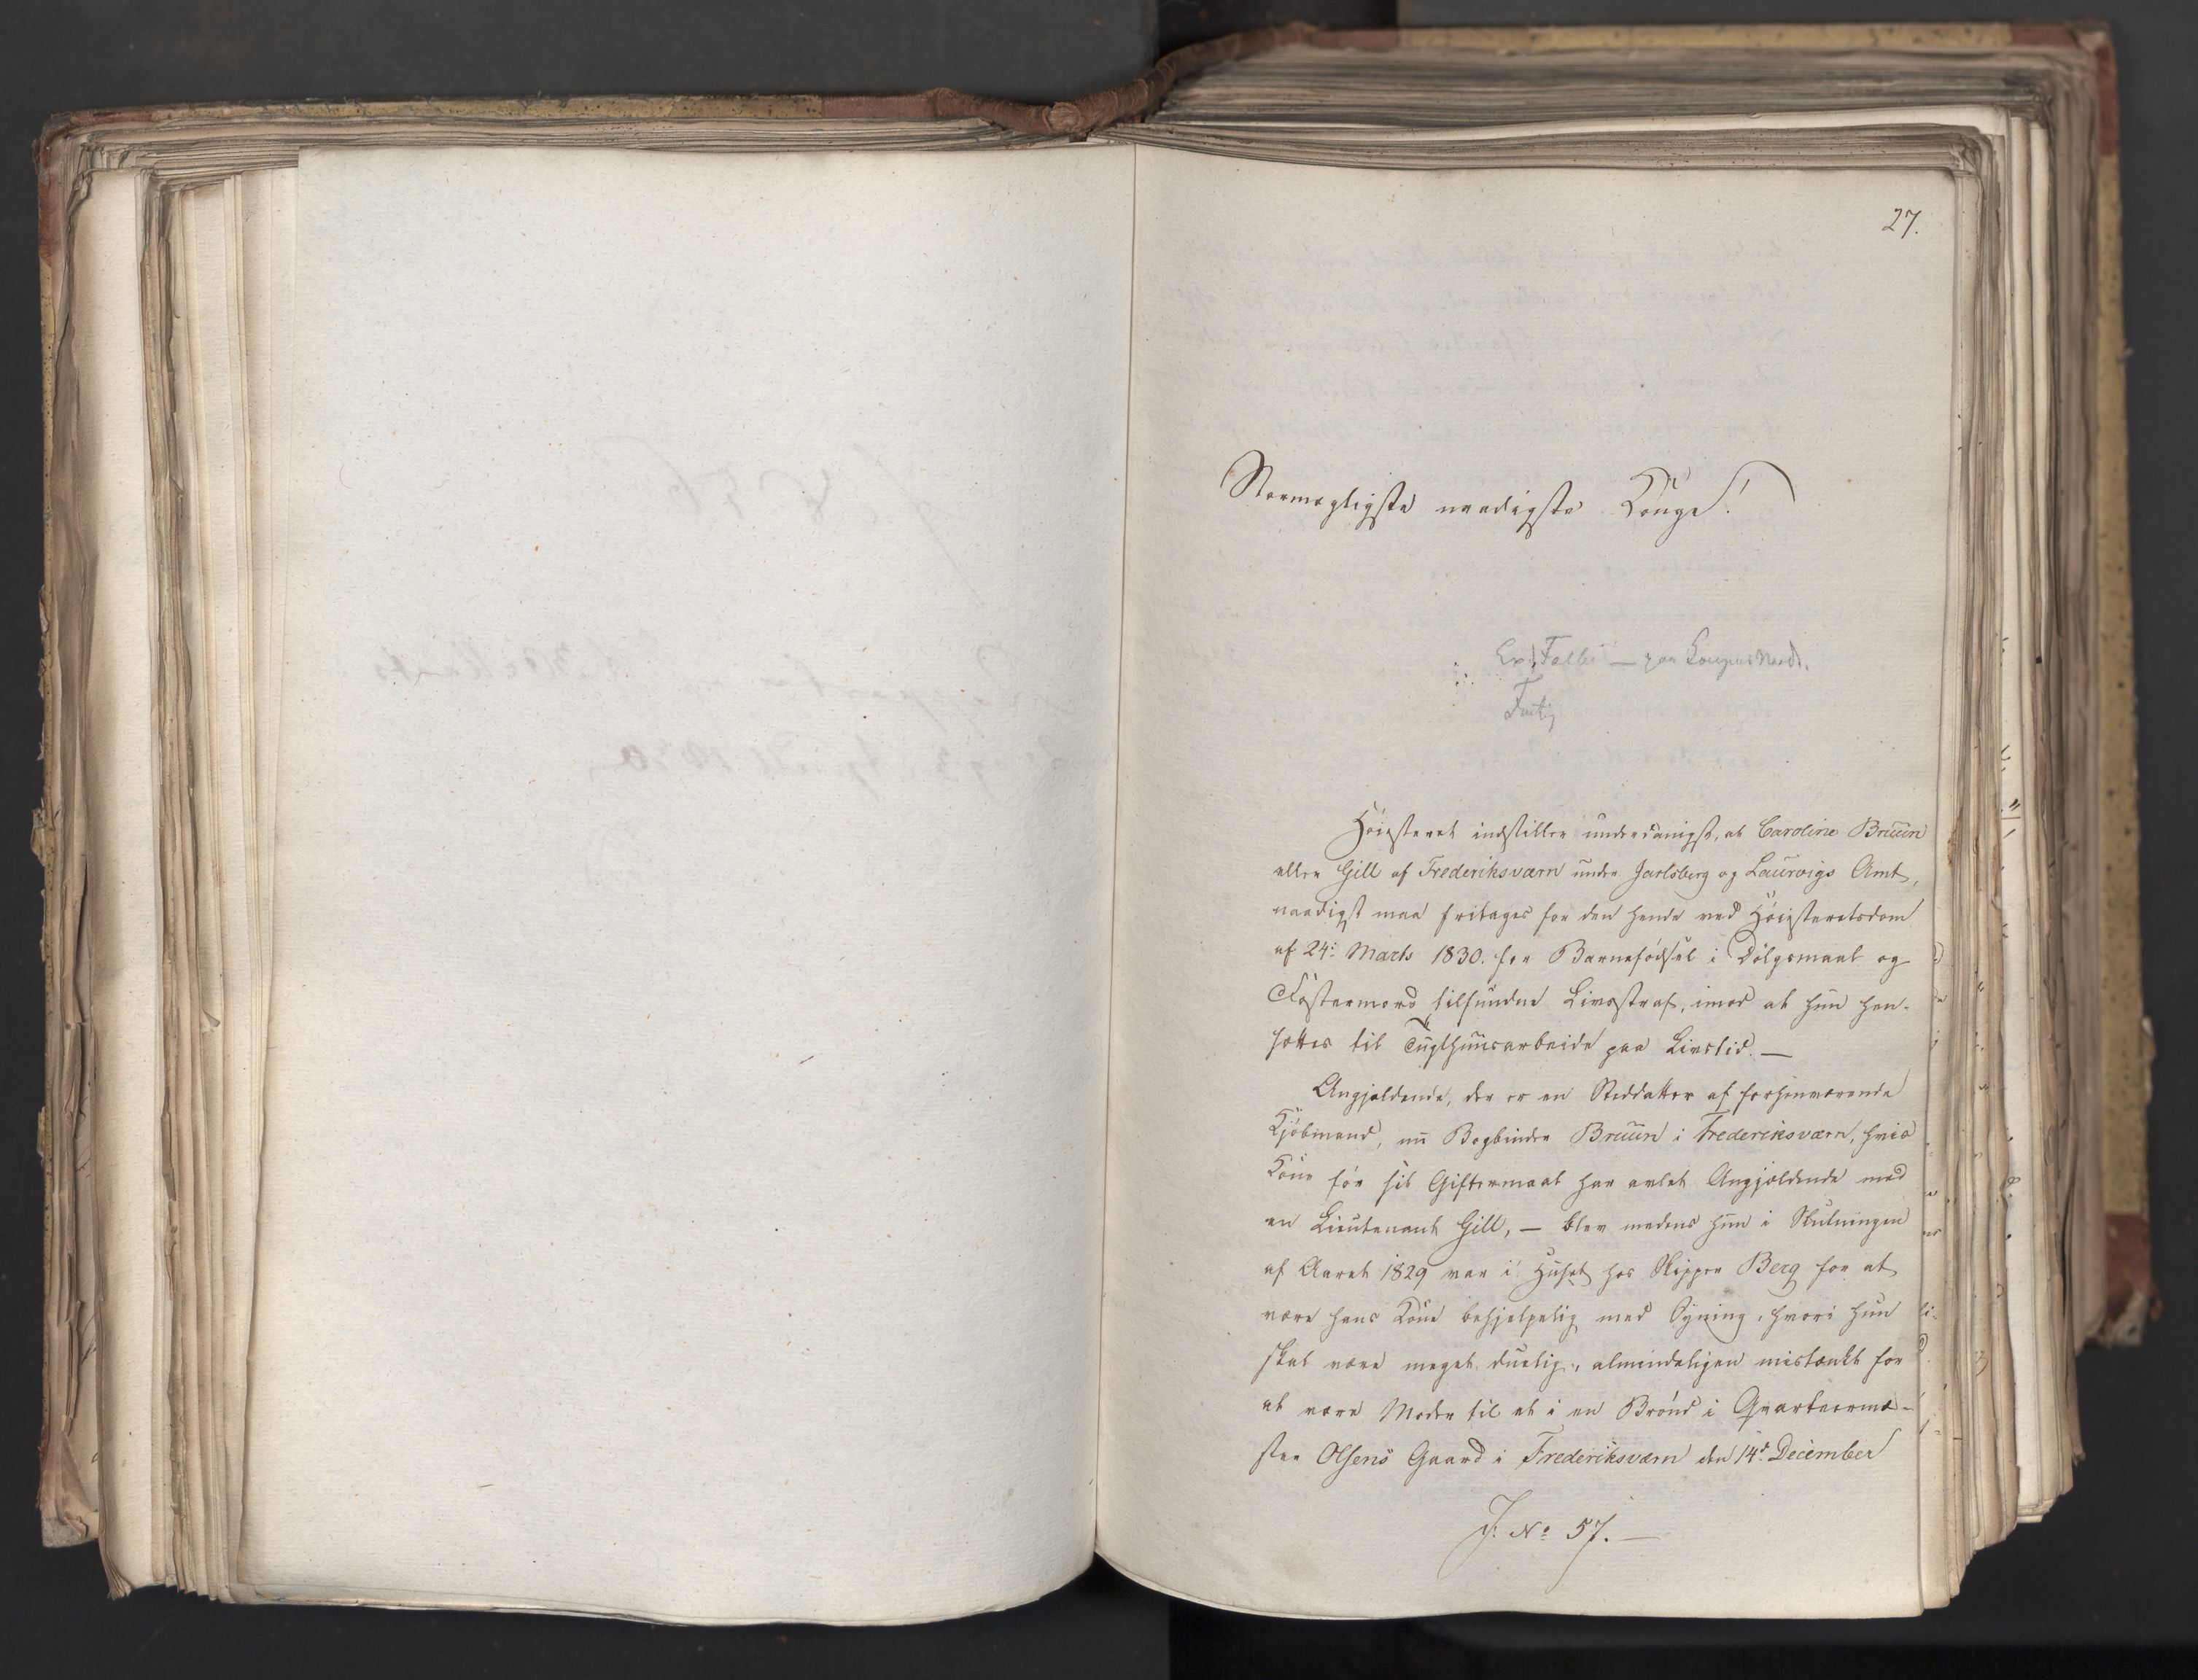 27.
Stormægtigste naadigste Konge!
Høiesteret indstiller underdanigst, at Caroline Bruun
eller Gill af Frederiksværn under Jarlsberg og Laurvigs Amt,
naadigst maa fritages for den hende ved Høiesteretsdom
af 24: Marts 1830. for Barnefødsel i Dølgsmaal og
Fostermord tilfundne Livsstraf, imod at hun hen-
sættes til Tugthuusarbeide paa Livstid. —
Angjældende, der er en Steddatter af forhenværende
Kjøbmand, nu Bogbinder Bruun i Frederiksværn, hvis
Kone før sit Giftermaal har avlet Angjældende med
en Lieutenant Gill, — blev medens hun i Slutningen
af Aaret 1829 var i Huset hos Skipper Berg for at
være hans Kone behjelpelig med Syning, hvori hun
skal være meget duelig, almindeligen mistænkt for
at være Moder til et i en Brønd i Qvarteerme-
ster Olsens Gaard i Frederiksværn den 14d December
J. No 57. —